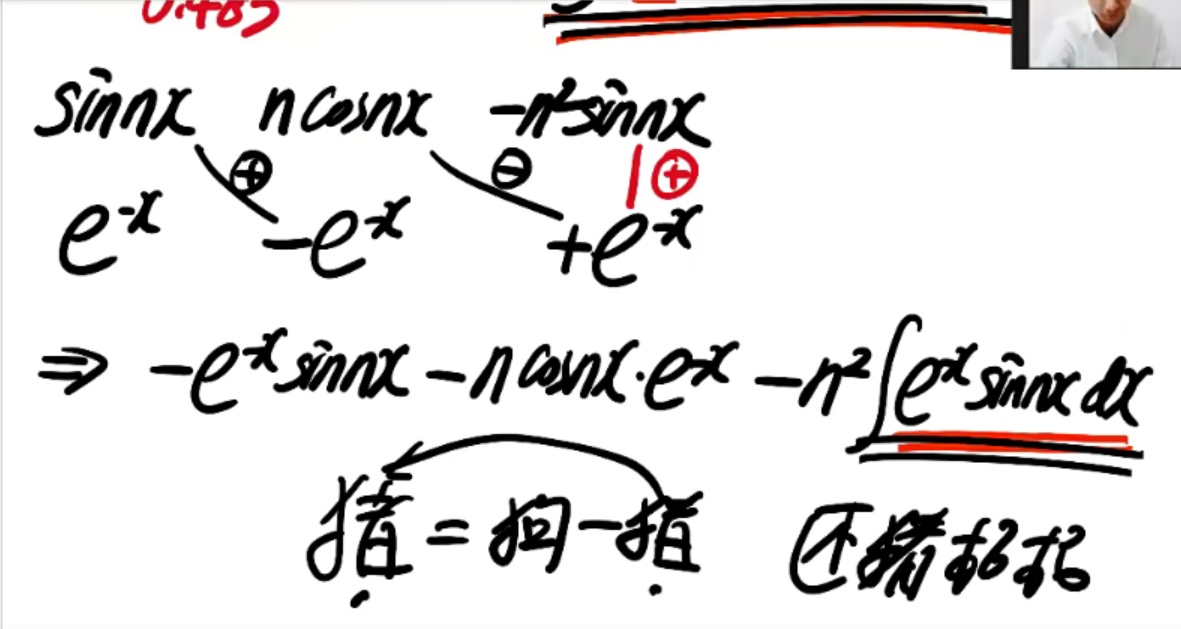 sinnx ncosnx -n²sinnx
⊕ ⊖ | ⊕
e^-x -e^-x +e^-x
⇒ -e^-x sinnx - ncosnx·e^-x - n²∫e^-x sinnx dx
猪 = 狗 - 猪 还猪格格